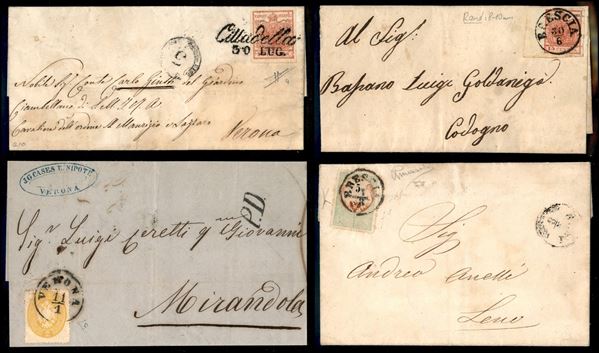 Cittadella
30 LUG.
Nobile Sig. Conte Carlo Giusti del Giardino
Ciambellano di S. M. I. R. A.
Cavaliere dell'ordine S. Maurizio e Lazzaro
Verona
BRESCIA
30
6
Al Sig:
Bassano Luigi Goldaniga
Codogno
J.G. CASES E NIPOTE
VERONA
P.D.
Sig. Luigi Ceretti q.m Giovanni
Mirandola
VERONA
11
1
BRESCIA
Sig
Andrea Anelli
Leno